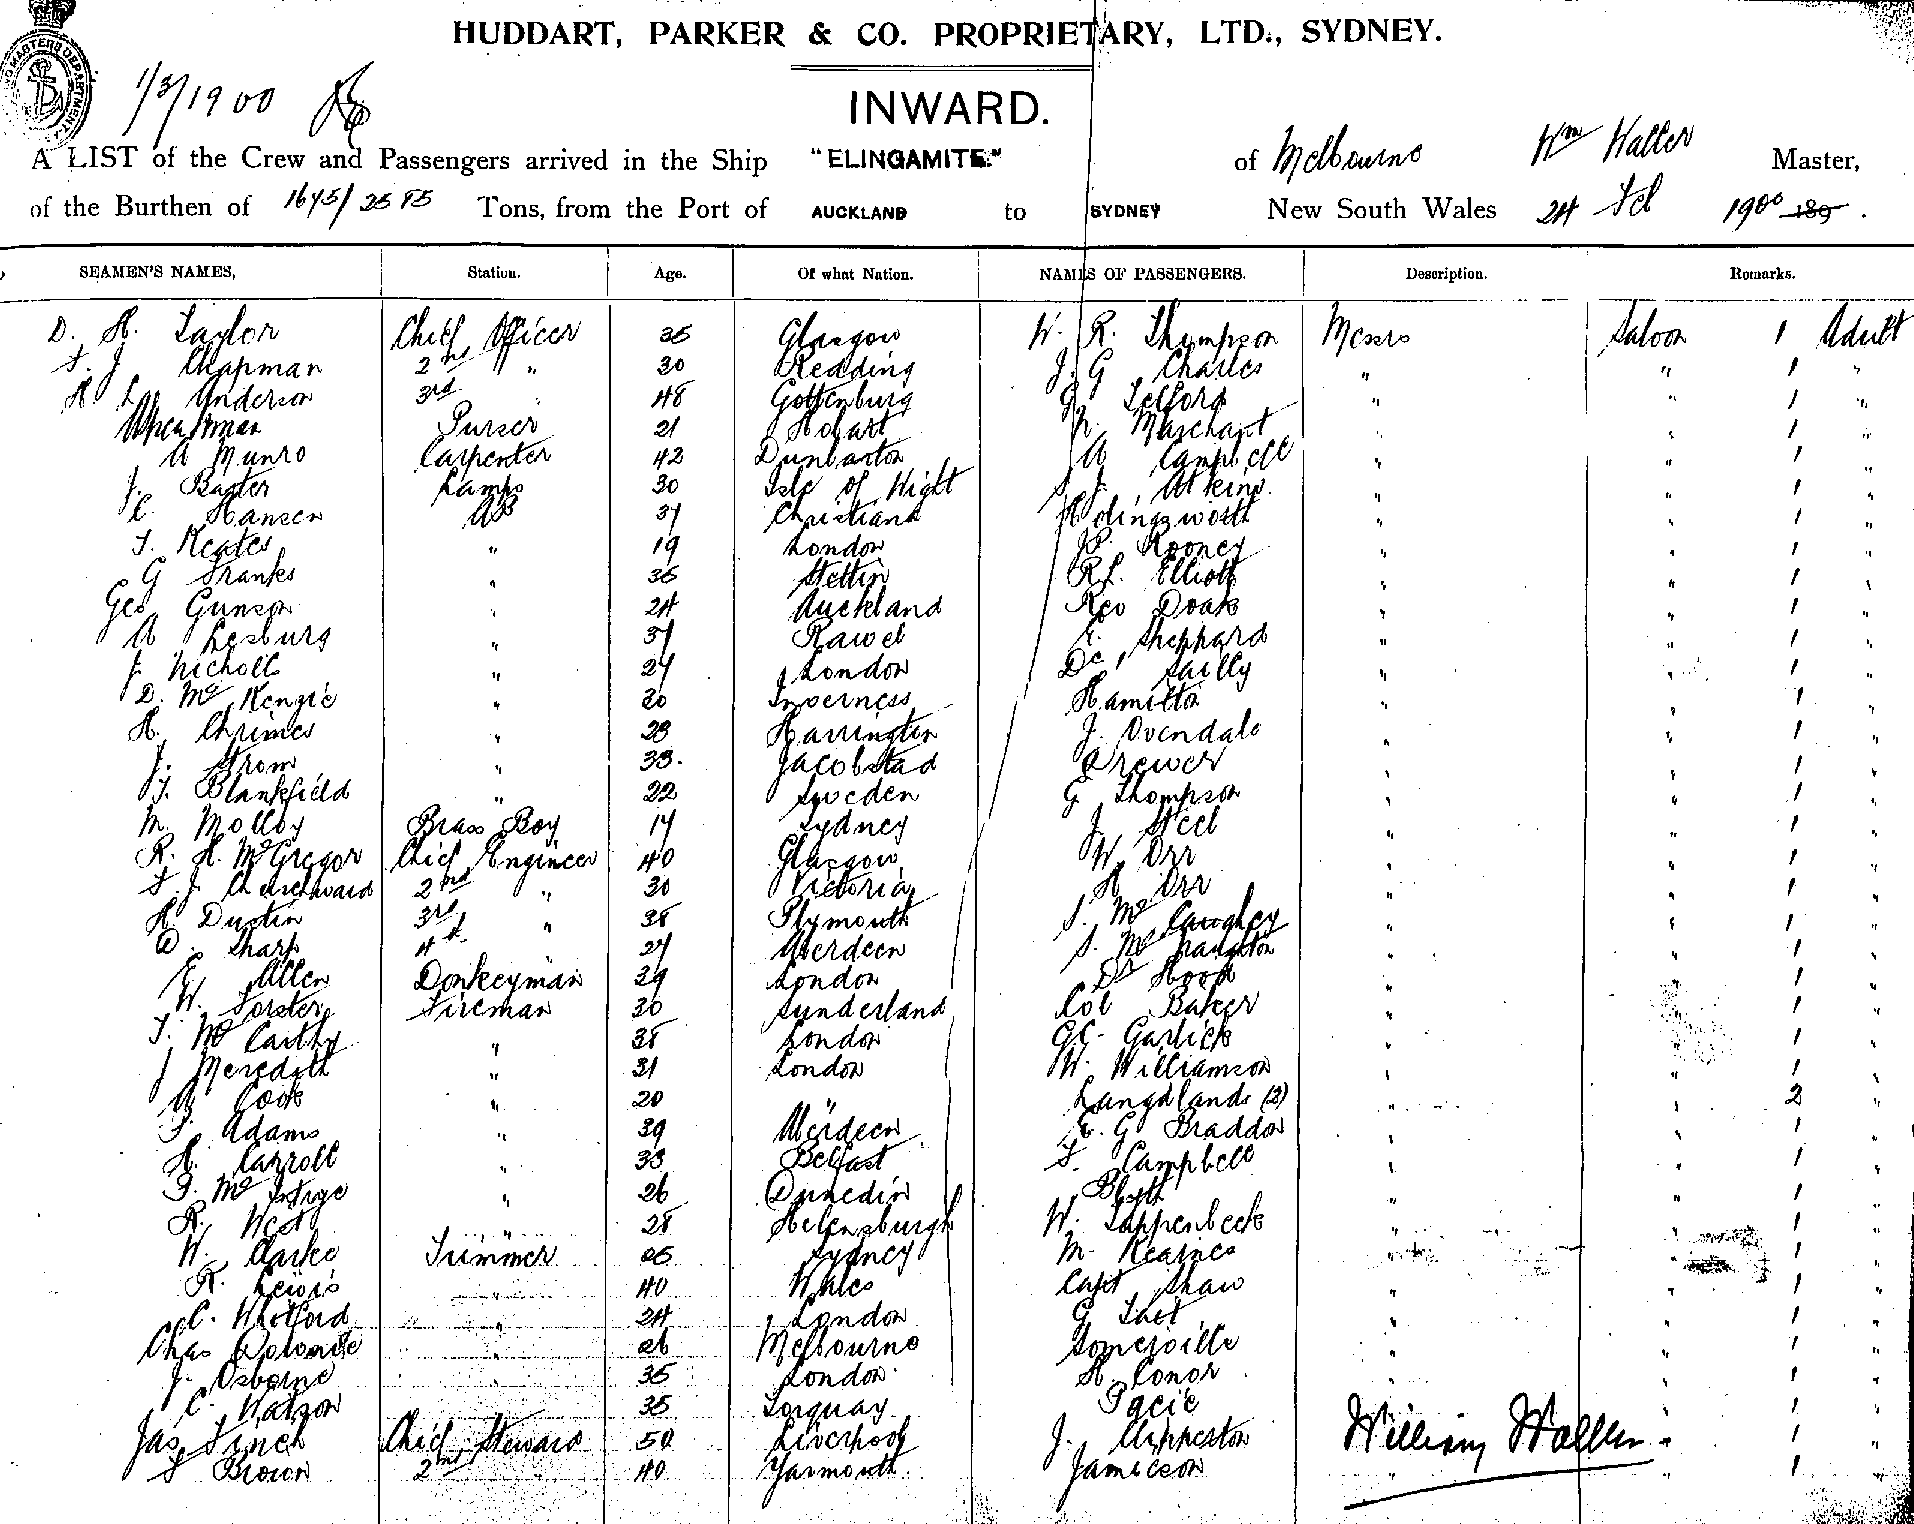 HUDDART, PARKER & CO. PROPRIETARY, LTD., SYDNEY.
1/3/1900
INWARD.
A LIST of the Crew and Passengers arrived in the Ship "ELINGAMITE." of Melbourne Wm Waller Master,
of the Burthen of 1675/2585 Tons, from the Port of AUCKLAND to SYDNEY New South Wales 24 Feb 1900 189 .
SEAMEN'S NAMES, Station. Age. Of what Nation. NAMES OF PASSENGERS. Description. Remarks.
D. H. Taylor Chief Officer 35 Glasgow W. R. Thompson Messrs Saloon 1 Adult
F. J. Chapman 2nd " 30 Reading J. G Charles " " 1 "
H Anderson 3rd " 48 Gottenburg G. Telford " " 1 "
Wheatman Purser 21 Hobart Marchant " " 1 "
A Munro Carpenter 42 Dunbarton A Campbell " " 1 "
J. Baxter Lamps 30 Isle of Wight S. J. Atkins. " " 1 "
C. Hansen AB 37 Christiana Holingsworth " " 1 "
T. Keates " 19 London Rooney " " 1 "
G Franks " 35 Stettin R L. Elliott " " 1 "
Geo Gunson " 24 Auckland Rev Doak " " 1 "
A Lesburg " 37 Rawel E. Sheppard " " 1 "
J. Nicholl " 27 London De Sailly " " 1 "
D. McKenzie " 20 Inverness Hamilton " " 1 "
H. Chrimes " 28 Harrington J. Ovendale " " 1 "
J. Strom " 33. Jacobstad Brewer " " 1 "
T. Blankfield " 22 Sweden G Thompson " " 1 "
M. Molloy Brass Boy 17 Sydney J. Steel " " 1 "
R. H. McGregor Chief Engineer 40 Glasgow W. Orr " " 1 "
F. J. Churchward 2nd " 30 Victoria H Orr " " 1 "
H Dustin 3rd " 38 Plymouth S. McCaughey " " 1 "
D. Sharp 4th 27 Aberdeen S. Mc " " 1 "
E. Allen Donkeyman 29 London Dr Hood " " 1 "
W. Forster Fireman 30 Sunderland Col Baker " " 1 "
T. McCarthy " 38 London GC. Garlick " " 1 "
J Meredith " 31 London W. Williamson " " 1 "
A Cook " 20 " Langdlands (2) " " 2 "
F. Adams " 39 Aberdeen E. G Braddon " " 1 "
H. Carroll " 33 Belfast F. Campbell " " 1 "
F. McIntyre " 26 Dunedin Blyth " " 1 "
R. West " 28 Helensburgh W. Lappenbeck " " 1 "
W. Clarke Trimmer 25 Sydney M. Kearnes " " 1 "
R. Lewis " 40 Wales Capt Shaw " " 1 "
C. Watford " 24 London G Tait " " 1 "
Chas " 26 Melbourne Somerville " " 1 "
J. Osborne " 35 London H. Conor " " 1 "
C. Watson 35 Torquay Pacie " 1 "
Jas Finch Chief Steward 50 Liverpool J. Apperston William Waller " 1 "
F Brown 2nd " 40 Yarmouth Jamieson " 1 "